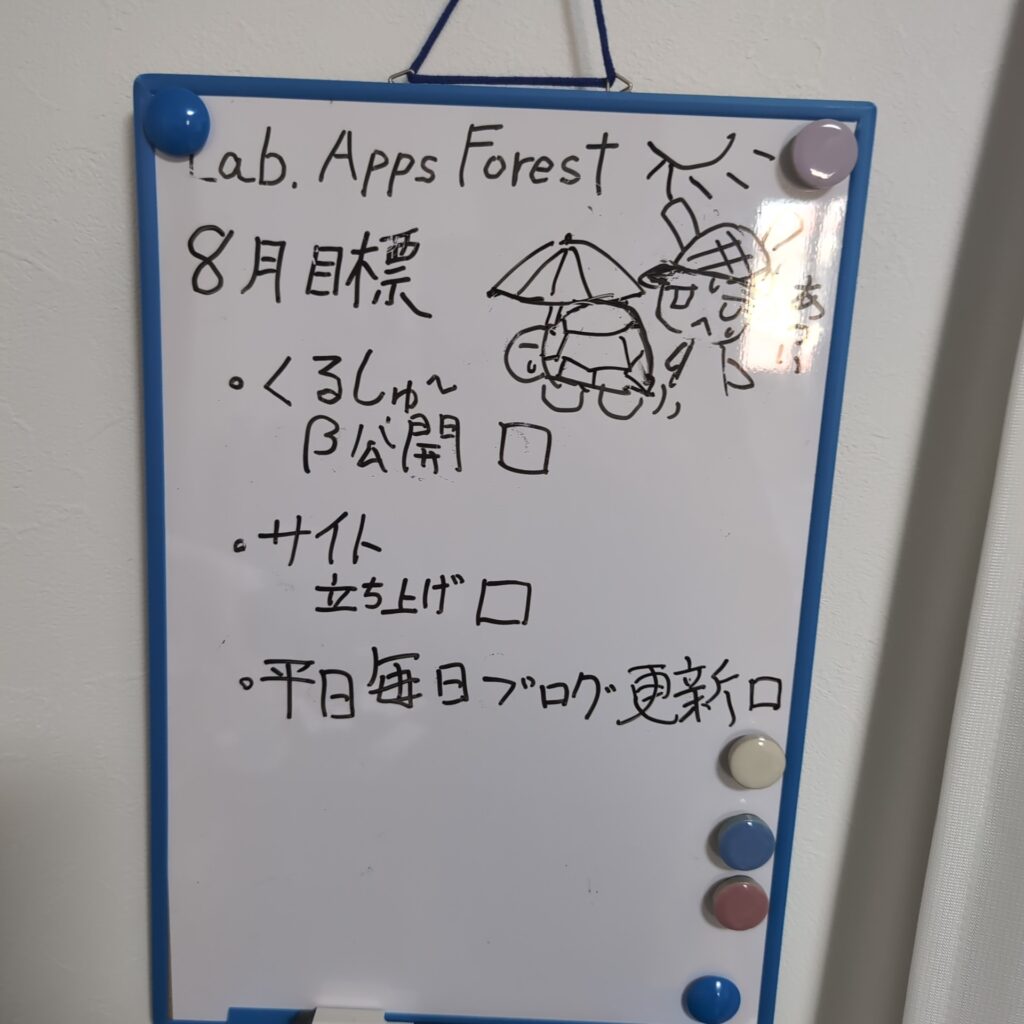 Lab. Apps Forest
8月目標
・くるしゅ〜
β公開 □
・サイト
立ち上げ □
・平日毎日ブログ更新 □